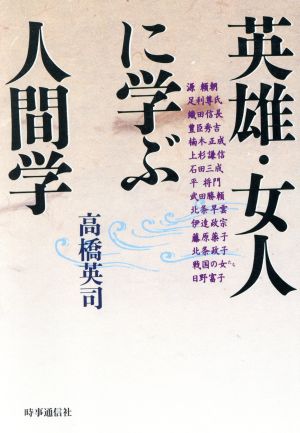 英雄・女人
に学ぶ
人間学
源 頼朝
足利尊氏
織田信長
豊臣秀吉
楠木正成
上杉謙信
石田三成
平 将門
武田勝頼
北条早雲
伊達政宗
藤原薬子
北条政子
戦国の女たち
日野富子
高橋英司
時事通信社